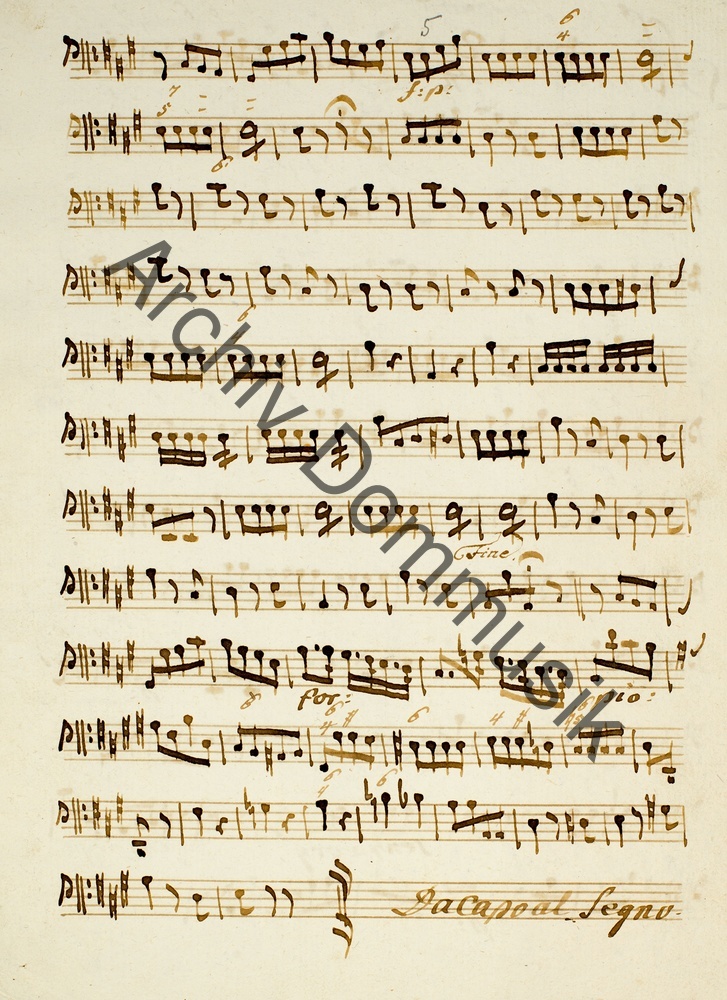 5
6
4
7
5
f: p:
6
6
Fine.
for:
pio:
8
6
4 #
6
4 #
6
4
6
Dacapo al Segno.
Archiv Dommusik